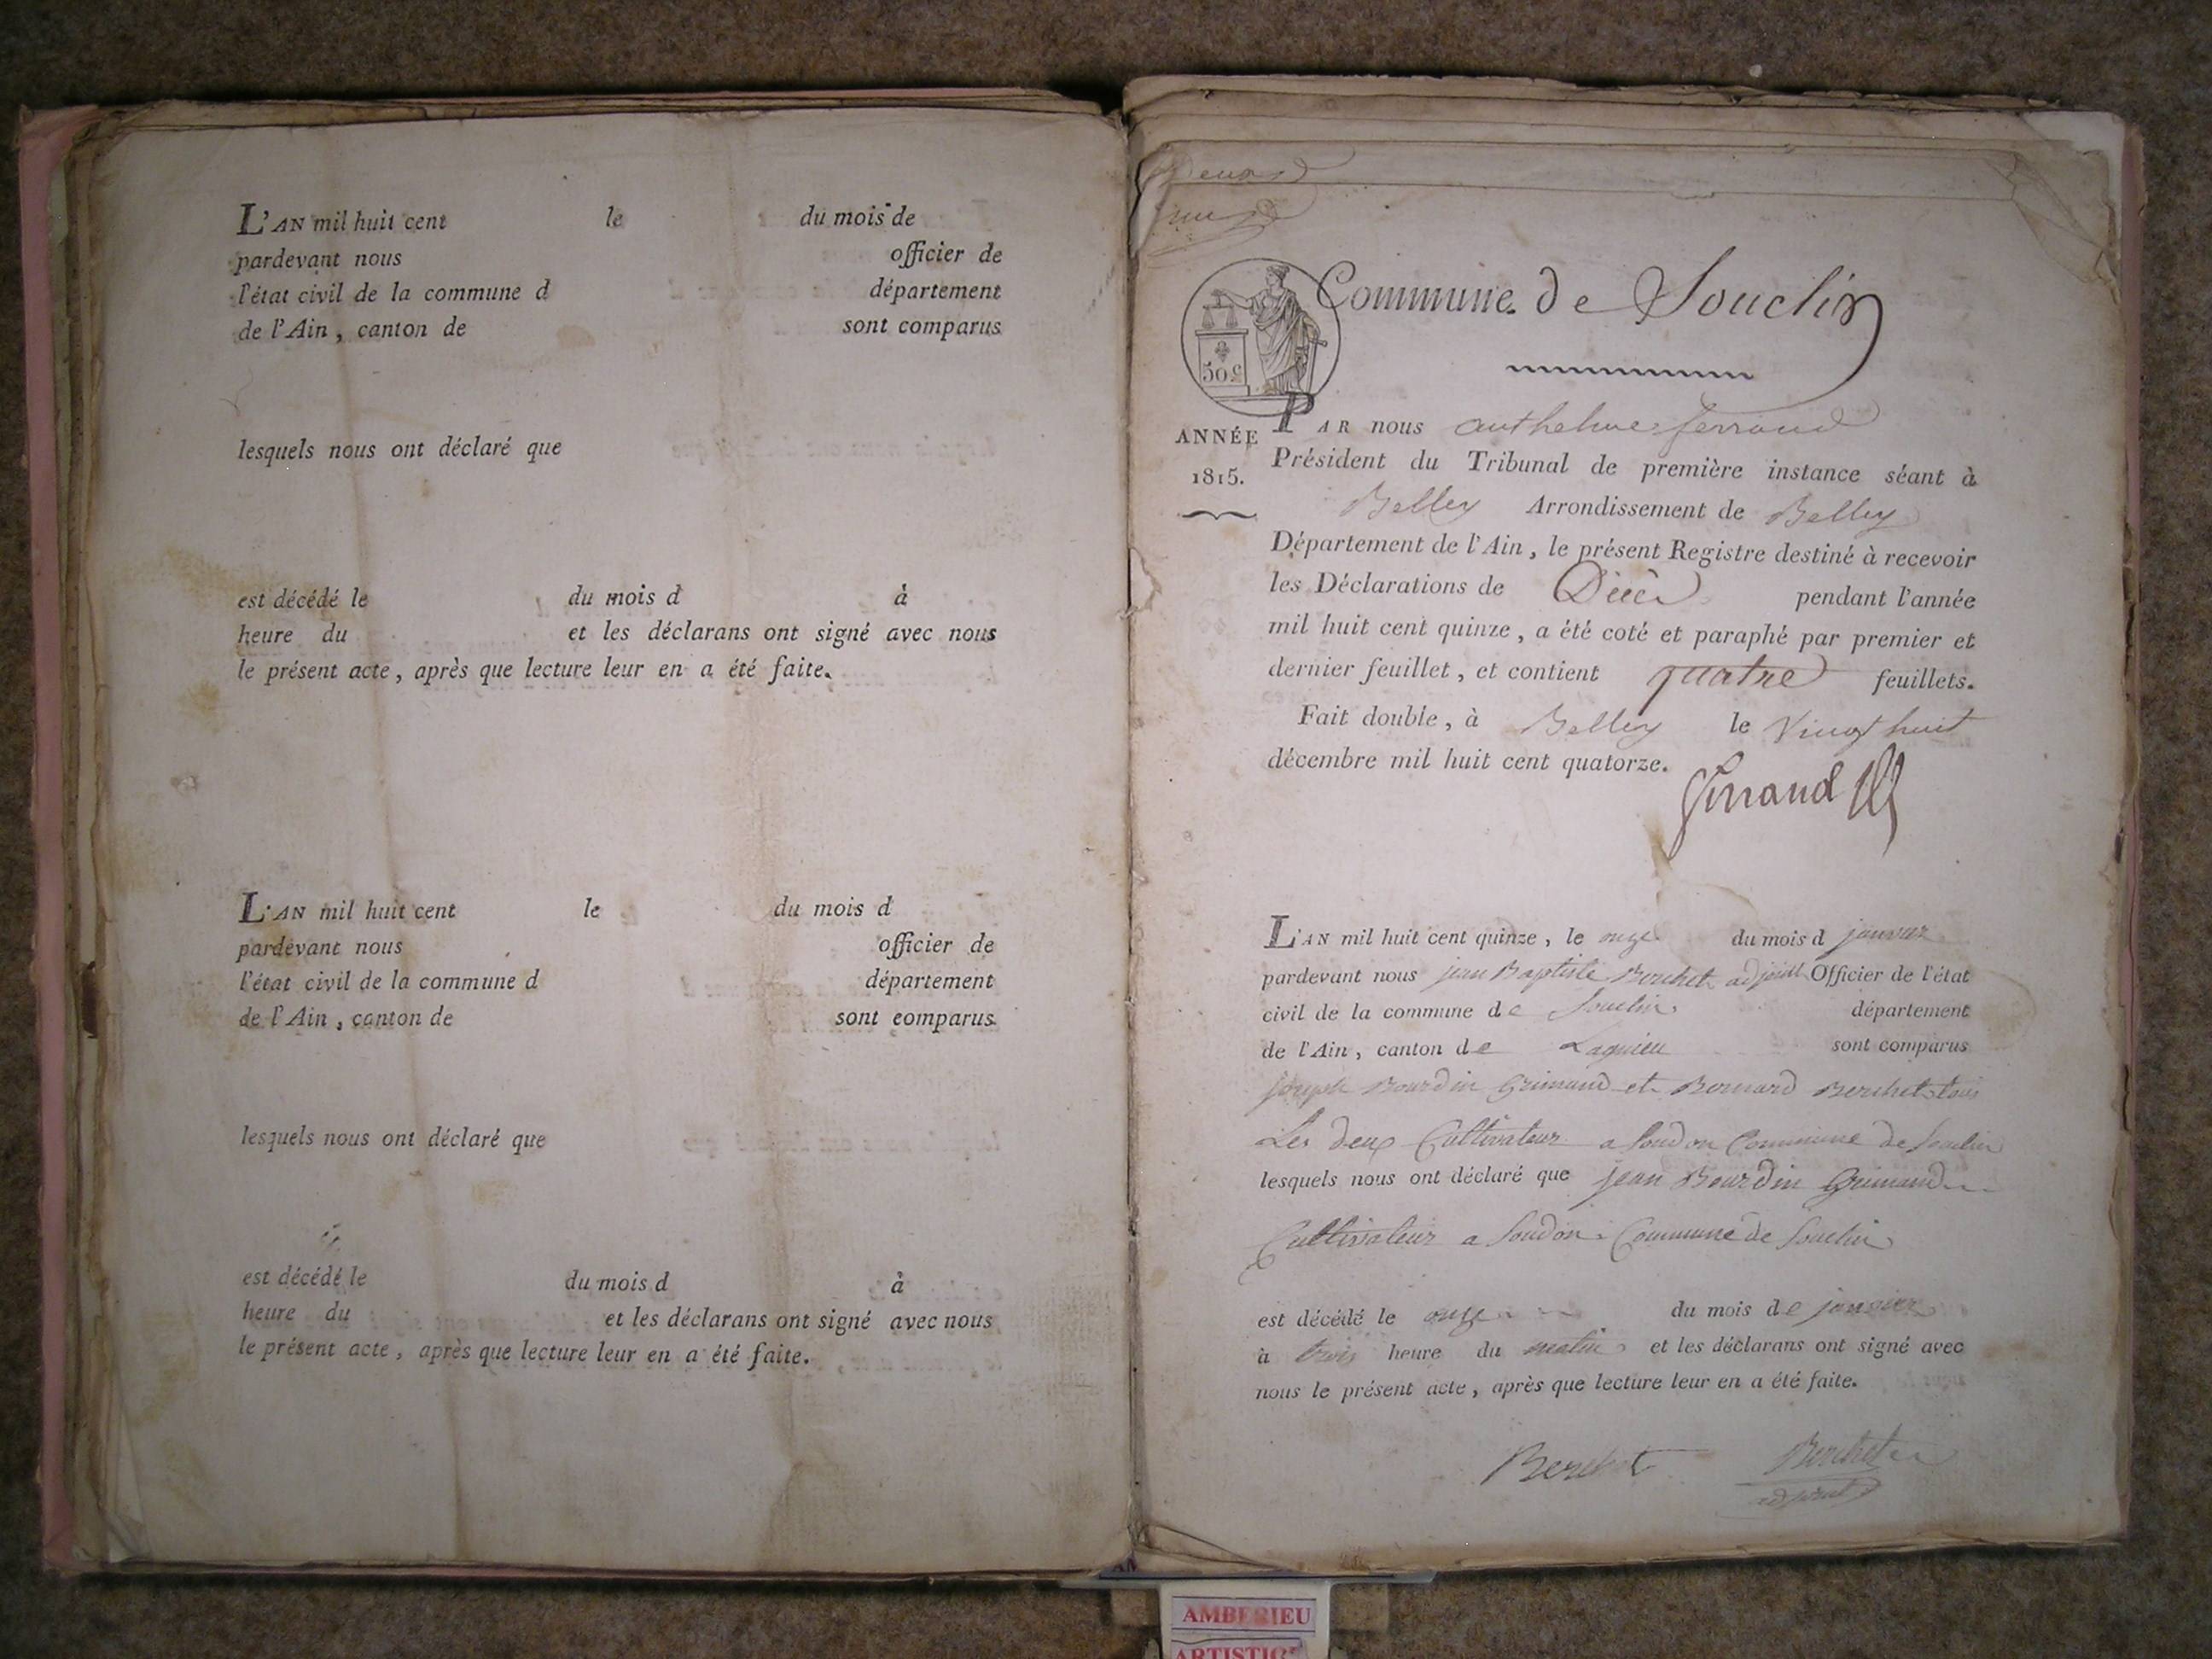 L'AN mil huit cent le du mois de
pardevant nous officier de
l'état civil de la commune d département
de l'Ain, canton de sont comparus
lesquels nous ont déclaré que
est décédé le du mois d à
heure du et les déclarans ont signé avec nous
le présent acte, après que lecture leur en a été faite.
L'AN mil huit cent le du mois d
pardevant nous officier de
l'état civil de la commune d département
de l'Ain, canton de sont comparus
lesquels nous ont déclaré que
est décédé le du mois d à
heure du et les déclarans ont signé avec nous
le présent acte, après que lecture leur en a été faite.
Commune de Souclin
50 c
ANNÉE
1815.
PAR nous anthelme ferrand
Président du Tribunal de première instance séant à
Belley Arrondissement de Belley
Département de l'Ain, le présent Registre destiné à recevoir
les Déclarations de Décès pendant l'année
mil huit cent quinze, a été coté et paraphé par premier et
dernier feuillet, et contient quatre feuillets.
Fait double, à Belley le Vingt huit
décembre mil huit cent quatorze.
ferrand
L'AN mil huit cent quinze, le onze du mois d janvier
pardevant nous jean Baptiste Berchet adjoint Officier de l'état
civil de la commune de Souclin département
de l'Ain, canton de Lagnieu sont comparus
joseph Bourdin Grimaud et Bernard Berchet tous
Les deux Cultivateur a Soudon Commune de Souclin
lesquels nous ont déclaré que jean Bourdin Grimaud
Cultivateur a Soudon Commune de Souclin
est décédé le onze du mois de janvier
à trois heure du matin et les déclarans ont signé avec
nous le présent acte, après que lecture leur en a été faite.
Berchet Berchet
adjoint
AMBERIEU
ARTISTIC